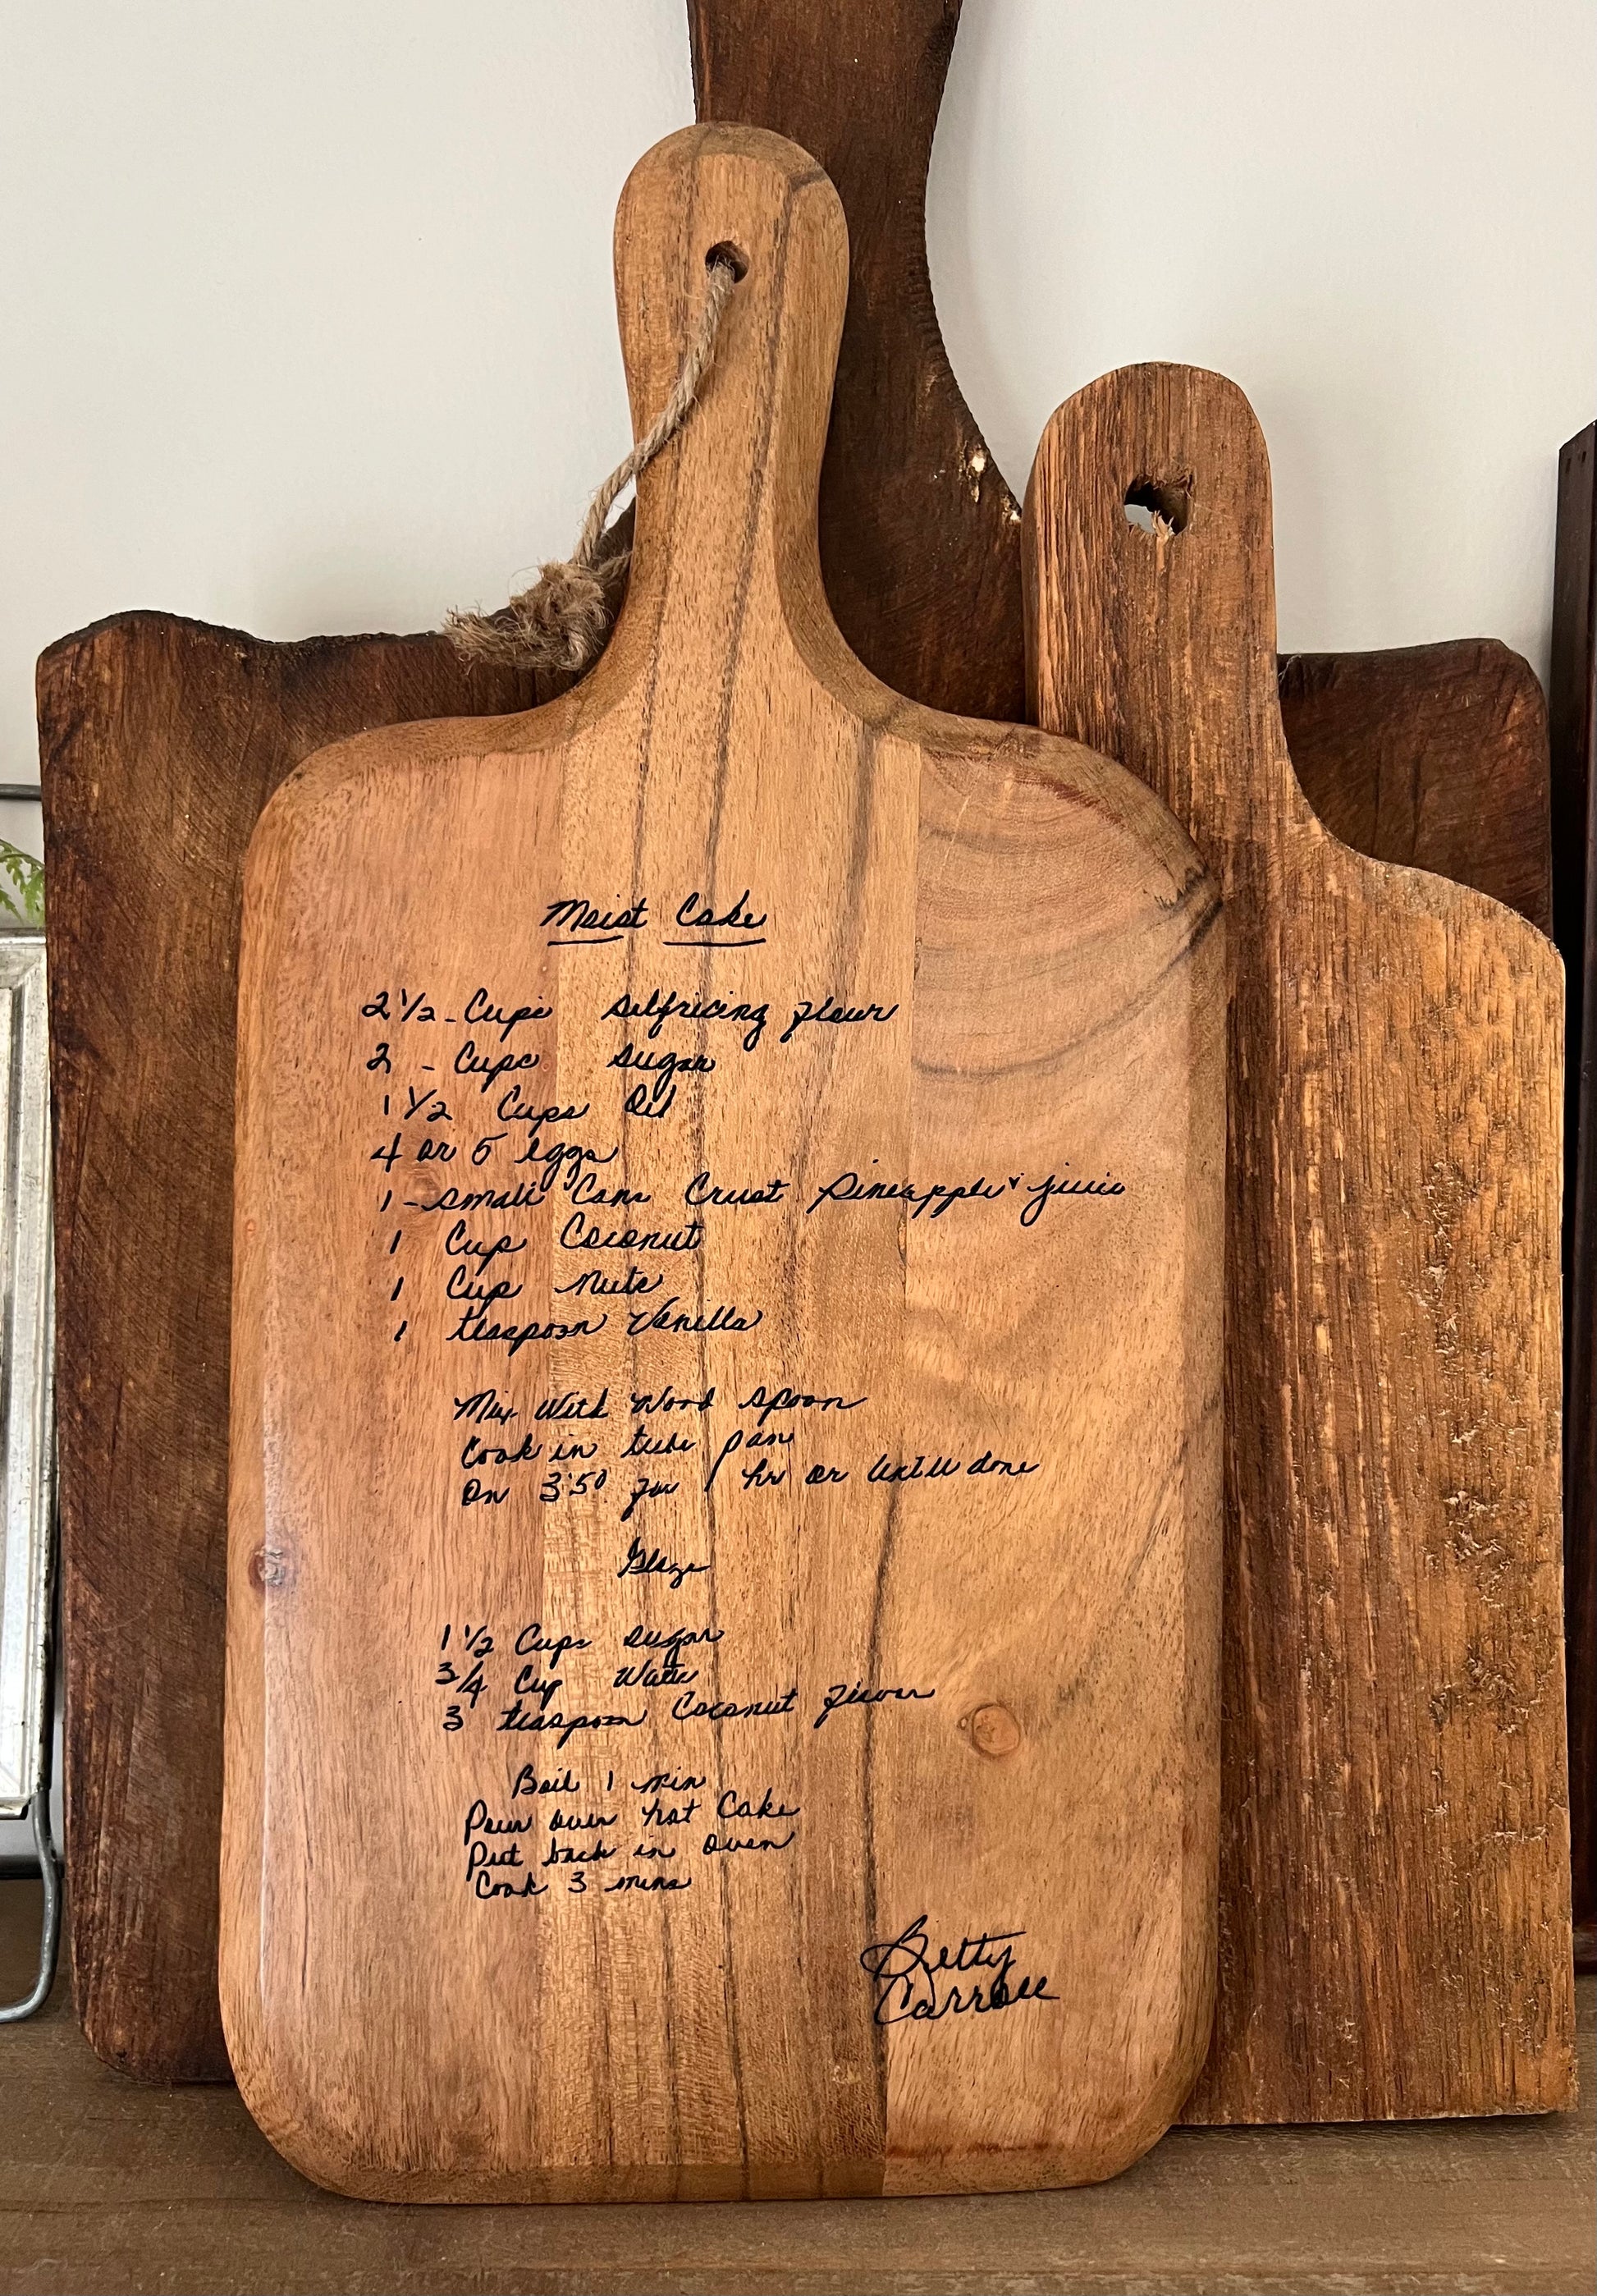 Moist Cake
2 1/2 - Cups selfricing flour
2 - Cups sugar
1 1/2 Cups Oil
4 or 5 eggs
1 - small Cans Crust pineapple & juice
1 Cup Coconut
1 Cup nuts
1 teaspoon Vanilla
Mix With Wood spoon
Cook in tube pan
On 350° for 1 hr or until done
Glaze
1 1/2 Cups sugar
3/4 Cup Water
3 teaspoon Coconut flavor
Boil 1 min
Pour over hot Cake
Put back in oven
Cook 3 mins
Betty
Carroll